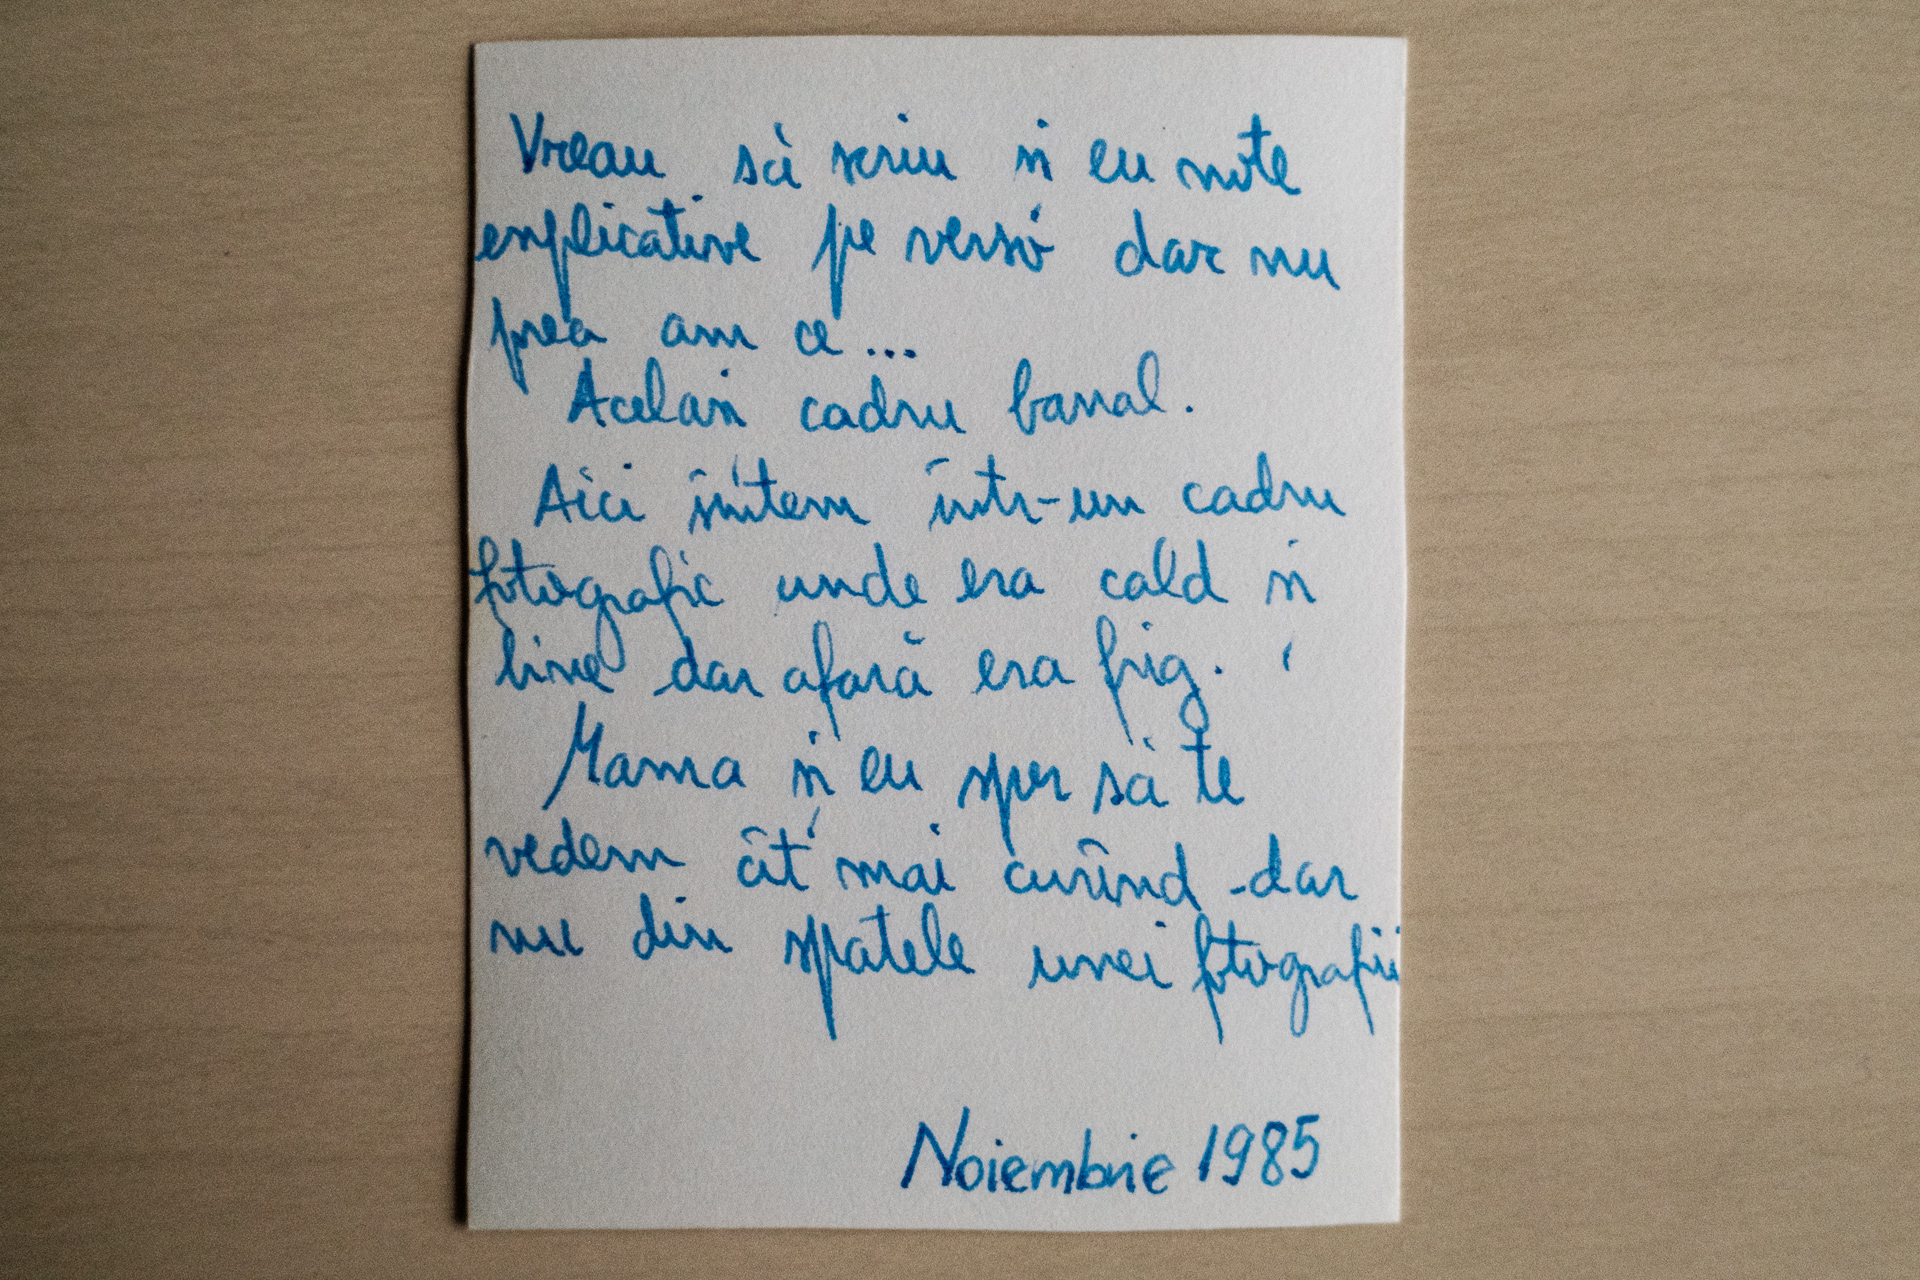 Vreau să scriu și eu note
explicative pe verso dar nu
prea am ce...
Același cadru banal.
Aici sîntem într-un cadru
fotografic unde era cald și
bine dar afară era frig.
Mama și eu sper să te
vedem cît mai curînd - dar
nu din spatele unei fotografii
Noiembrie 1985